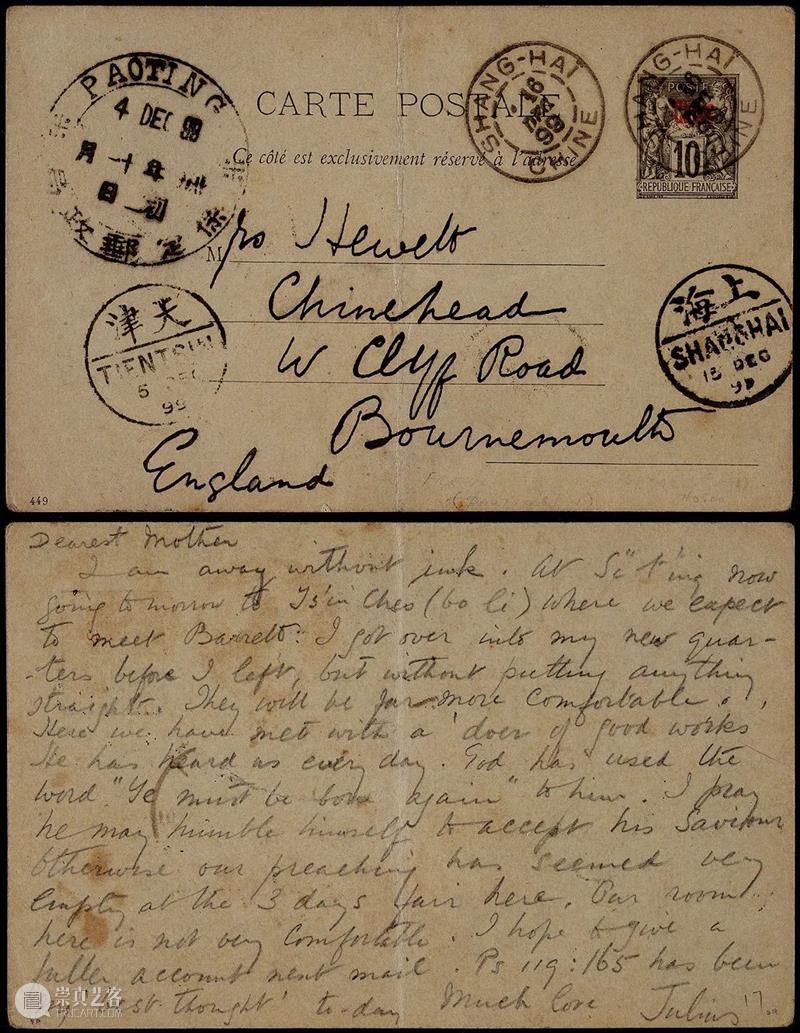 PAOTING
4 DEC 99
月一十年
日一初
保定郵政
CARTE POSTALE
Ce côté est exclusivement réservé à l'adresse
SHANG-HAÏ
16
DEC
99
CHINE
SHANG-HAÏ
16
CHINE
POSTE
10
REPUBLIQUE FRANÇAISE
M
Mrs Hewett
Chinehead
W Clyff Road
Bournemouth
England
津天
TIENTSIN
5 DEC
99
海上
SHANGHAI
15 DEC
99
449
Dearest Mother
I am away without ink. At Si t'ing now
going tomorrow to Ts'in Ches (bo li) where we expect
to meet Barrett. I got over into my new quar-
-ters before I left, but without putting anything
straight. They will be far more comfortable.
Here we have met with a 'doer of good works
He has heard us every day. God has used the
word "Ye must be born again" to him. I pray
he may humble himself to accept his Saviour
Otherwise our preaching has seemed very
empty at the 3 days fair here. Our room
here is not very comfortable. I hope to give a
fuller account next mail. Ps 119:165 has been
thought' to-day Much love Julius
崇真艺客
TRUEART.COM